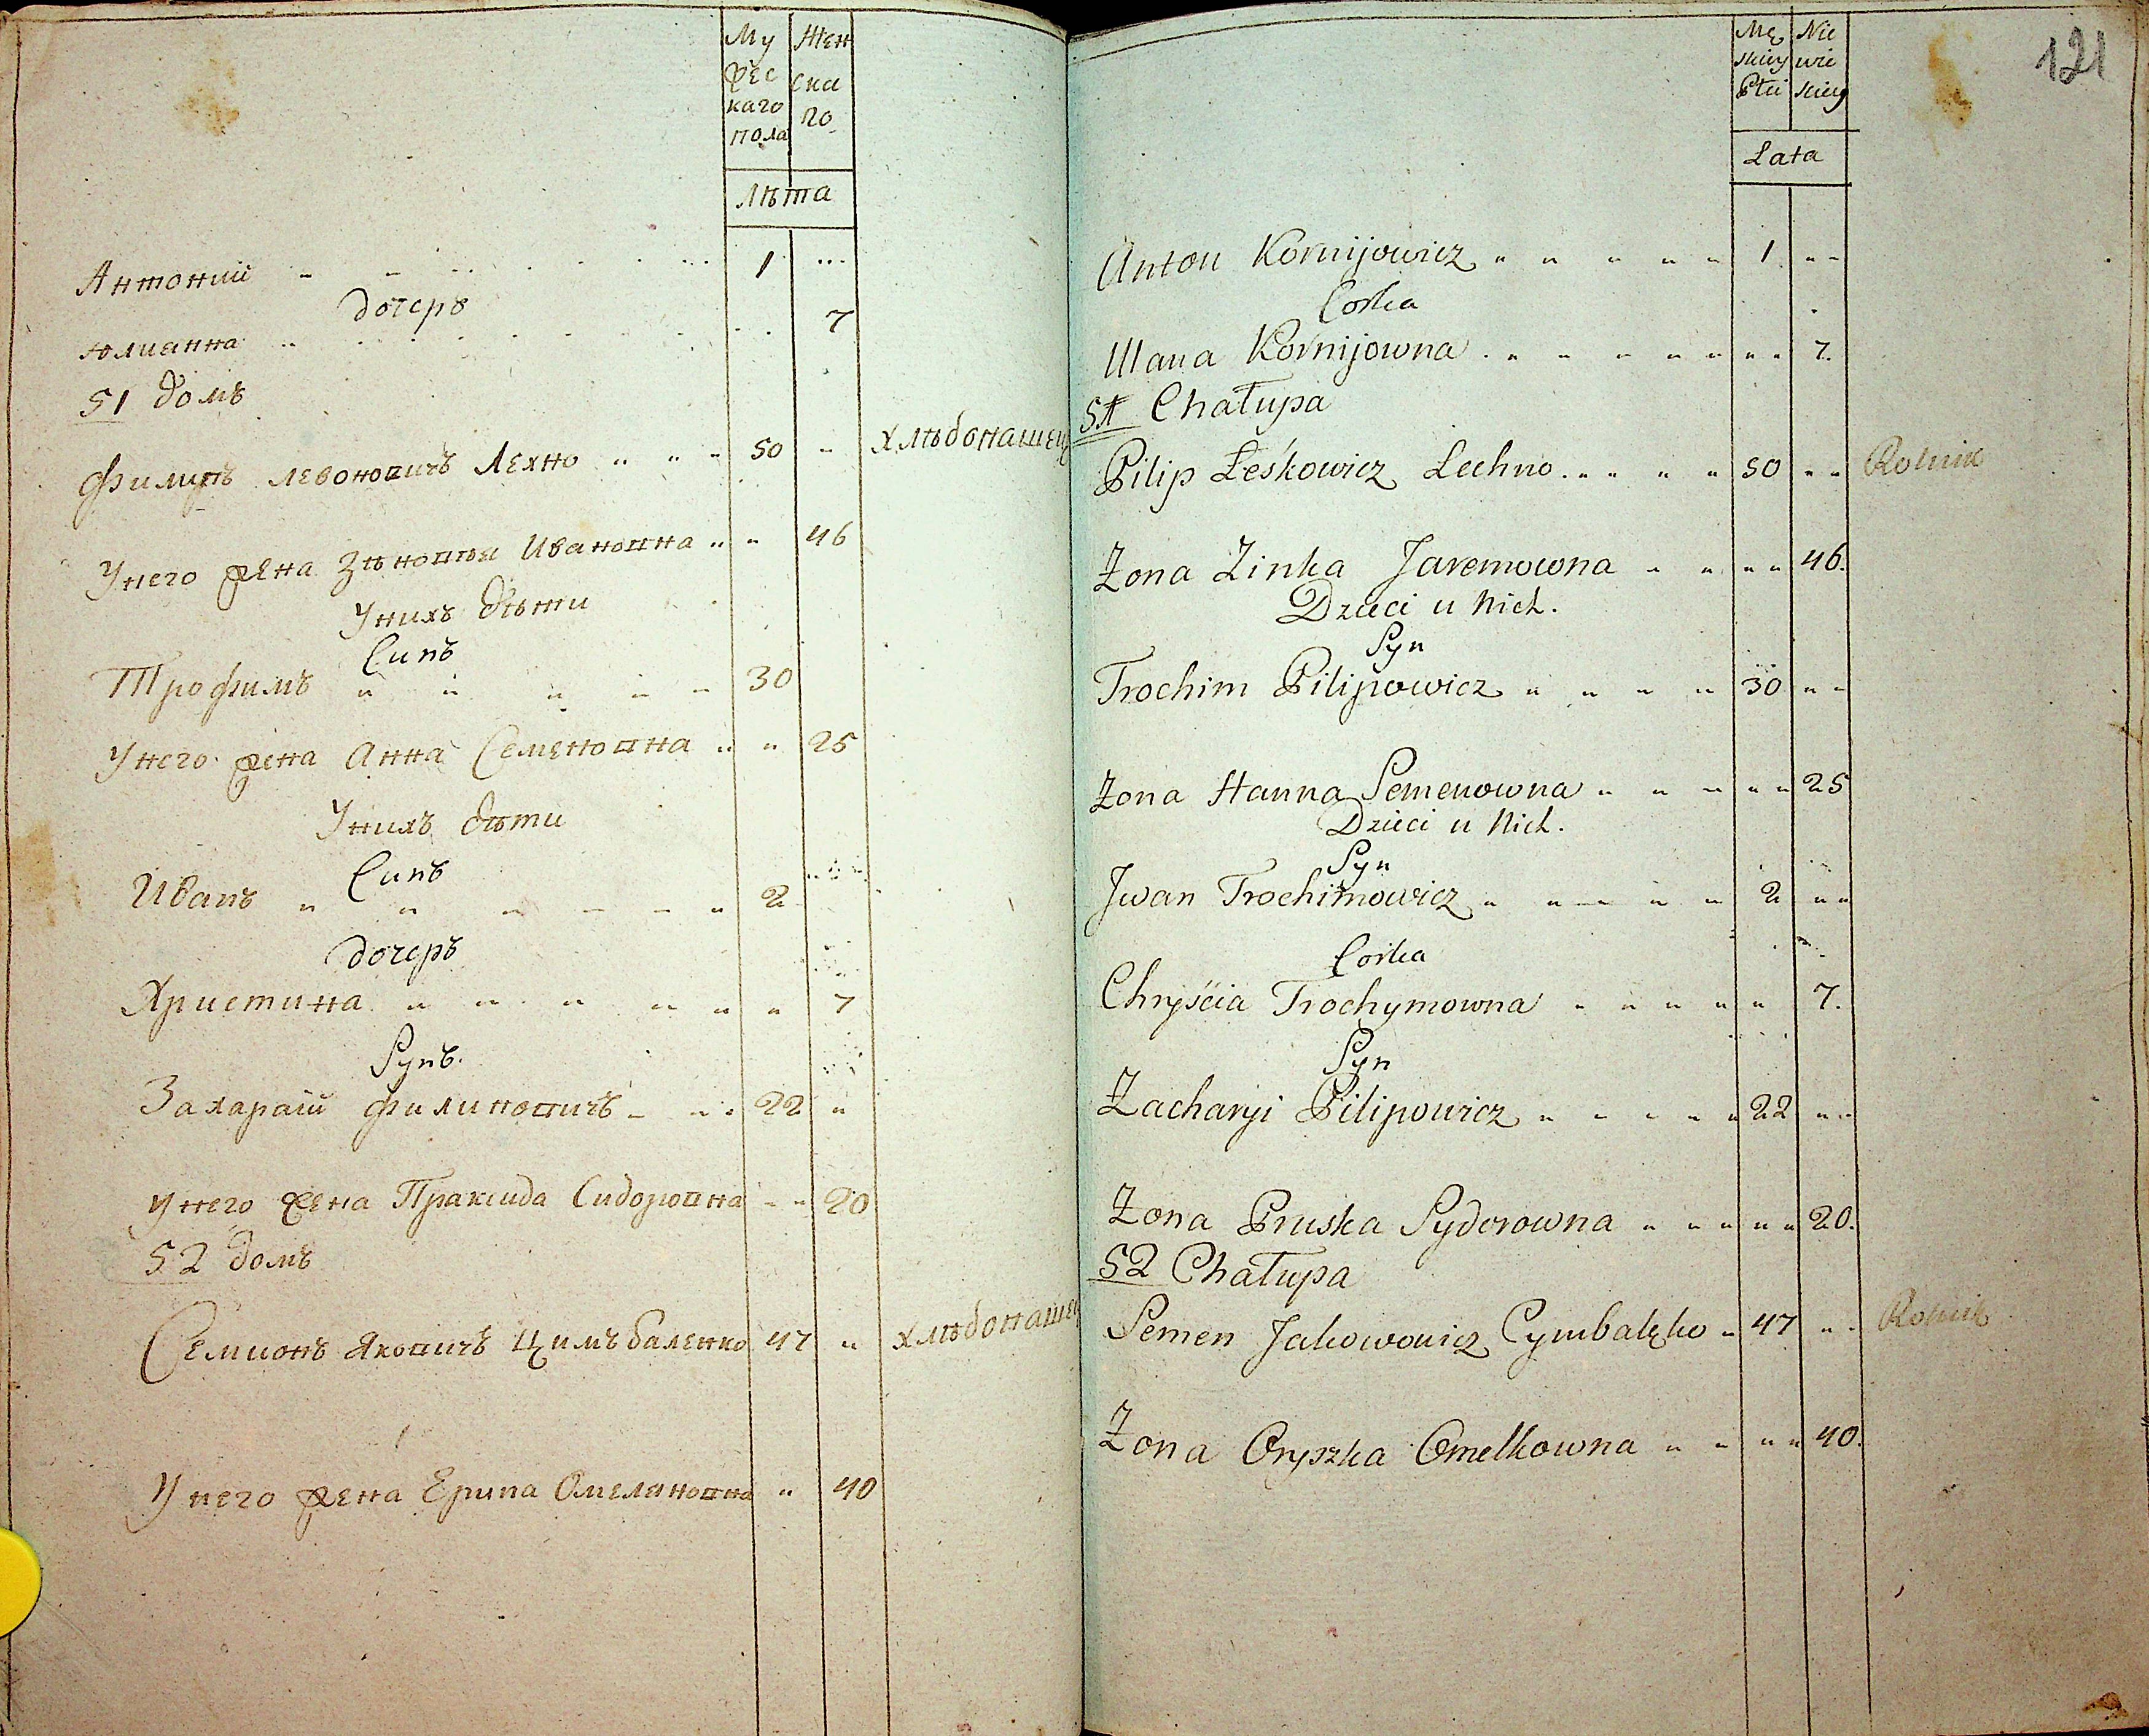 Му Жен
жес ска
каго го
пола
Лѣта
Антоний 1
дочерь
юлианна 7
51 домъ
Филипъ левоновичъ Лехно 50 хлѣбопашец
Унего жена Зѣновия Ивановна 46
Унихъ дѣти
Синъ
Трофимъ 30
Унего жена Анна Семеновна 25
Унихъ дѣти
Синъ
Иванъ 2
дочеръ
Христина 7
Synъ.
Захарий филиповичъ 22
унего жена Праксида Сидоровна 20
52 домъ
Семионъ Яковичъ Цимъбаленко 47 хлѣбопашец
Унего жена Ерина Омеляновна 40
121
Mę Nie
skiey wie
Płci skiey
Lata
Anton Kornijowicz 1
Corka
Ulana Kornijowna 7.
51 Chałupa
Pilip Leśkowicz Lechno 50 Rolnik
Żona Zinka Jaremowna 46.
Dzieci u Nich.
Syn
Trochim Pilipowicz 30
Żona Hanna Semenowna 25
Dzieci u Nich.
Syn
Jwan Trochimowicz 2
Corka
Chryścia Trochymowna 7.
Syn
Zacharyi Pilipowicz 22
Żona Pruska Syderowna 20.
52 Chałupa
Semen Jakowowicz Cymbalęko 47 Rolnik
Żona Oryszka Omelkowna 40.